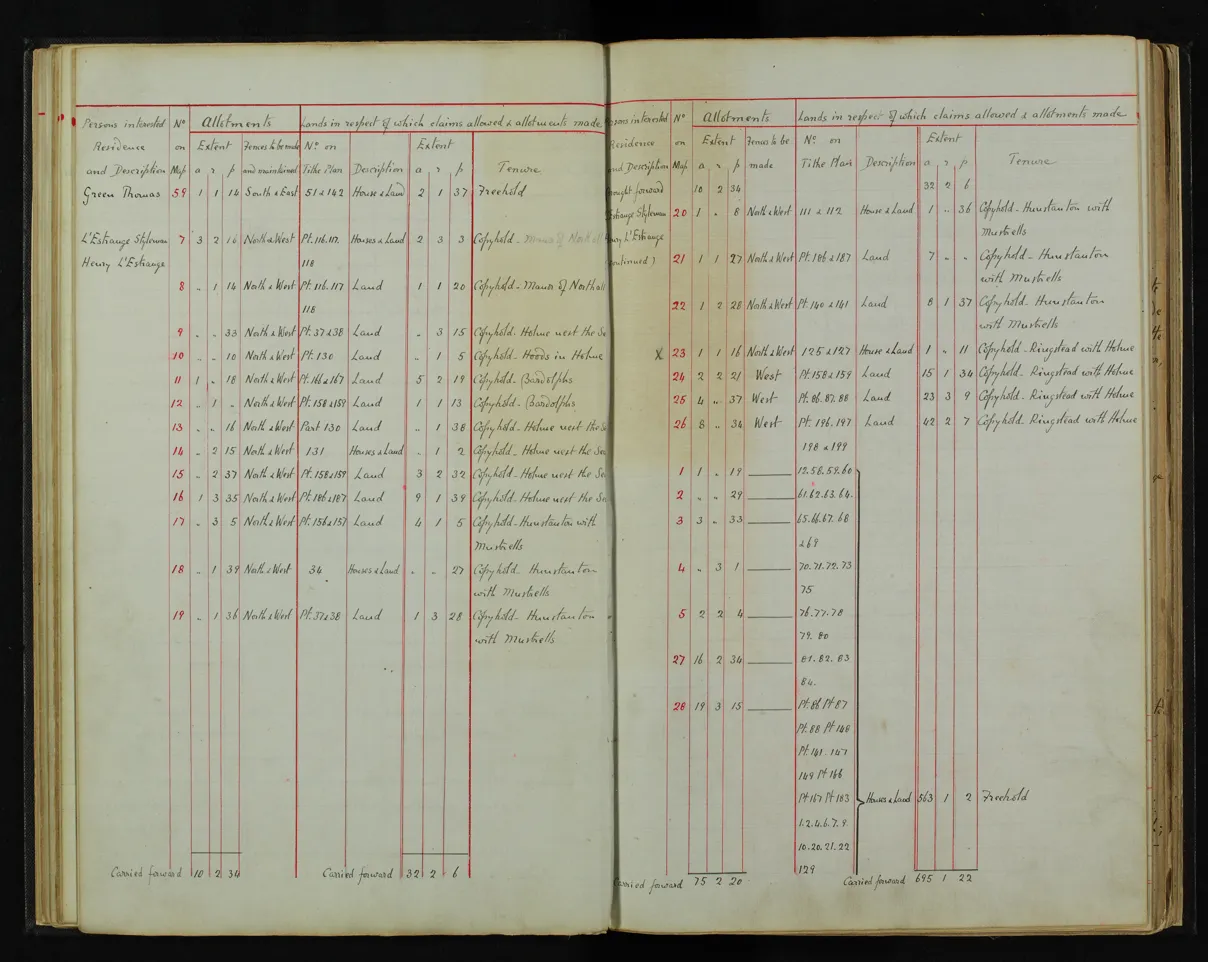 Persons interested Nº Allotments Lands in respect of which claims allowed & allotments made
Residence on Extent Fences to be made Nº on Extent
and Description Map a r p and maintained Tithe Plan Description a r p Tenure
Green Thomas 59 1 1 14 South & East 51 & 142 House & Land 2 1 37 Freehold
L'Estrange Styleman 7 3 2 16 North & West Pt. 116.117. Houses & Land 2 3 3 Copyhold - Manor of
Henry L'Estrange 118
8 .. 1 14 North & West Pt. 116.117 Land 1 1 20 Copyhold - Manor of Northall
118
9 .. .. 33 North & West Pt. 37 & 38 Land .. 3 15 Copyhold - Holme next the Se
10 .. .. 10 North & West Pt. 130 Land .. 1 5 Copyhold - Hoods in Holme
11 1 .. 18 North & West Pt. 166 & 167 Land 5 2 19 Copyhold - Bardolphs
12 .. 1 .. North & West Pt. 158 & 159 Land 1 1 13 Copyhold - Bardolphs
13 .. .. 16 North & West Part 130 Land .. 1 38 Copyhold - Holme next the Se
14 .. 2 15 North & West 131 Houses & Land .. 1 2 Copyhold - Holme next the Sea
15 .. 2 37 North & West Pt. 158 & 159 Land 3 2 32 Copyhold - Holme next the Se
16 1 3 35 North & West Pt. 186 & 187 Land 9 1 39 Copyhold - Holme next the Se
17 .. 3 5 North & West Pt. 156 & 157 Land 4 1 5 Copyhold - Hunstanton with
Mustrells
18 .. 1 39 North & West 34 Houses & Land .. .. 27 Copyhold - Hunstanton
with Mustrells
19 .. 1 36 North & West Pt. 37 & 38 Land 1 3 28 Copyhold - Hunstanton
with Mustrells
Carried forward 10 2 34 Carried forward 32 2 6
rsons interested Nº Allotments Lands in respect of which claims allowed & allotments made
Residence on Extent Fences to be Nº on Extent
and Description Map a r p made Tithe Plan Description a r p Tenure
ought forward 10 2 34 32 2 6
Estrange Styleman 20 1 .. 8 North & West 111 & 112 House & Land 1 .. 36 Copyhold - Hunstanton with
nry L'Estrange Mustrells
continued) 21 1 1 27 North & West Pt. 186 & 187 Land 7 .. .. Copyhold - Hunstanton
with Mustrells
22 1 2 28 North & West Pt. 140 & 141 Land 8 1 37 Copyhold - Hunstanton
with Mustrells
X 23 1 1 16 North & West 125 & 127 House & Land 1 .. 11 Copyhold - Ringstead with Holme
24 2 2 21 West Pt. 158 & 159 Land 15 1 34 Copyhold - Ringstead with Holme
25 4 .. 37 West Pt. 86.87.88 Land 23 3 9 Copyhold - Ringstead with Holme
26 8 .. 34 West Pt. 196.197 Land 42 2 7 Copyhold - Ringstead with Holme
198 & 199
1 1 .. 19 12.58.59.60
2 .. .. 29 61.62.63.64.
3 3 .. 33 65.66.67.68
& 69
4 .. 3 1 70.71.72.73
75
5 2 2 4 76.77.78
79.80
27 16 2 34 81.82.83
84.
28 19 3 15 Pt. 86 Pt 87
Pt. 88 Pt 140
Pt. 141 . 147
149 Pt 166
Pt 167 Pt 183 Houses & Land 563 1 2 Freehold
1.2.4.6.7.9.
10.20.21.22
129
Carried forward 75 2 20 Carried forward 695 1 22